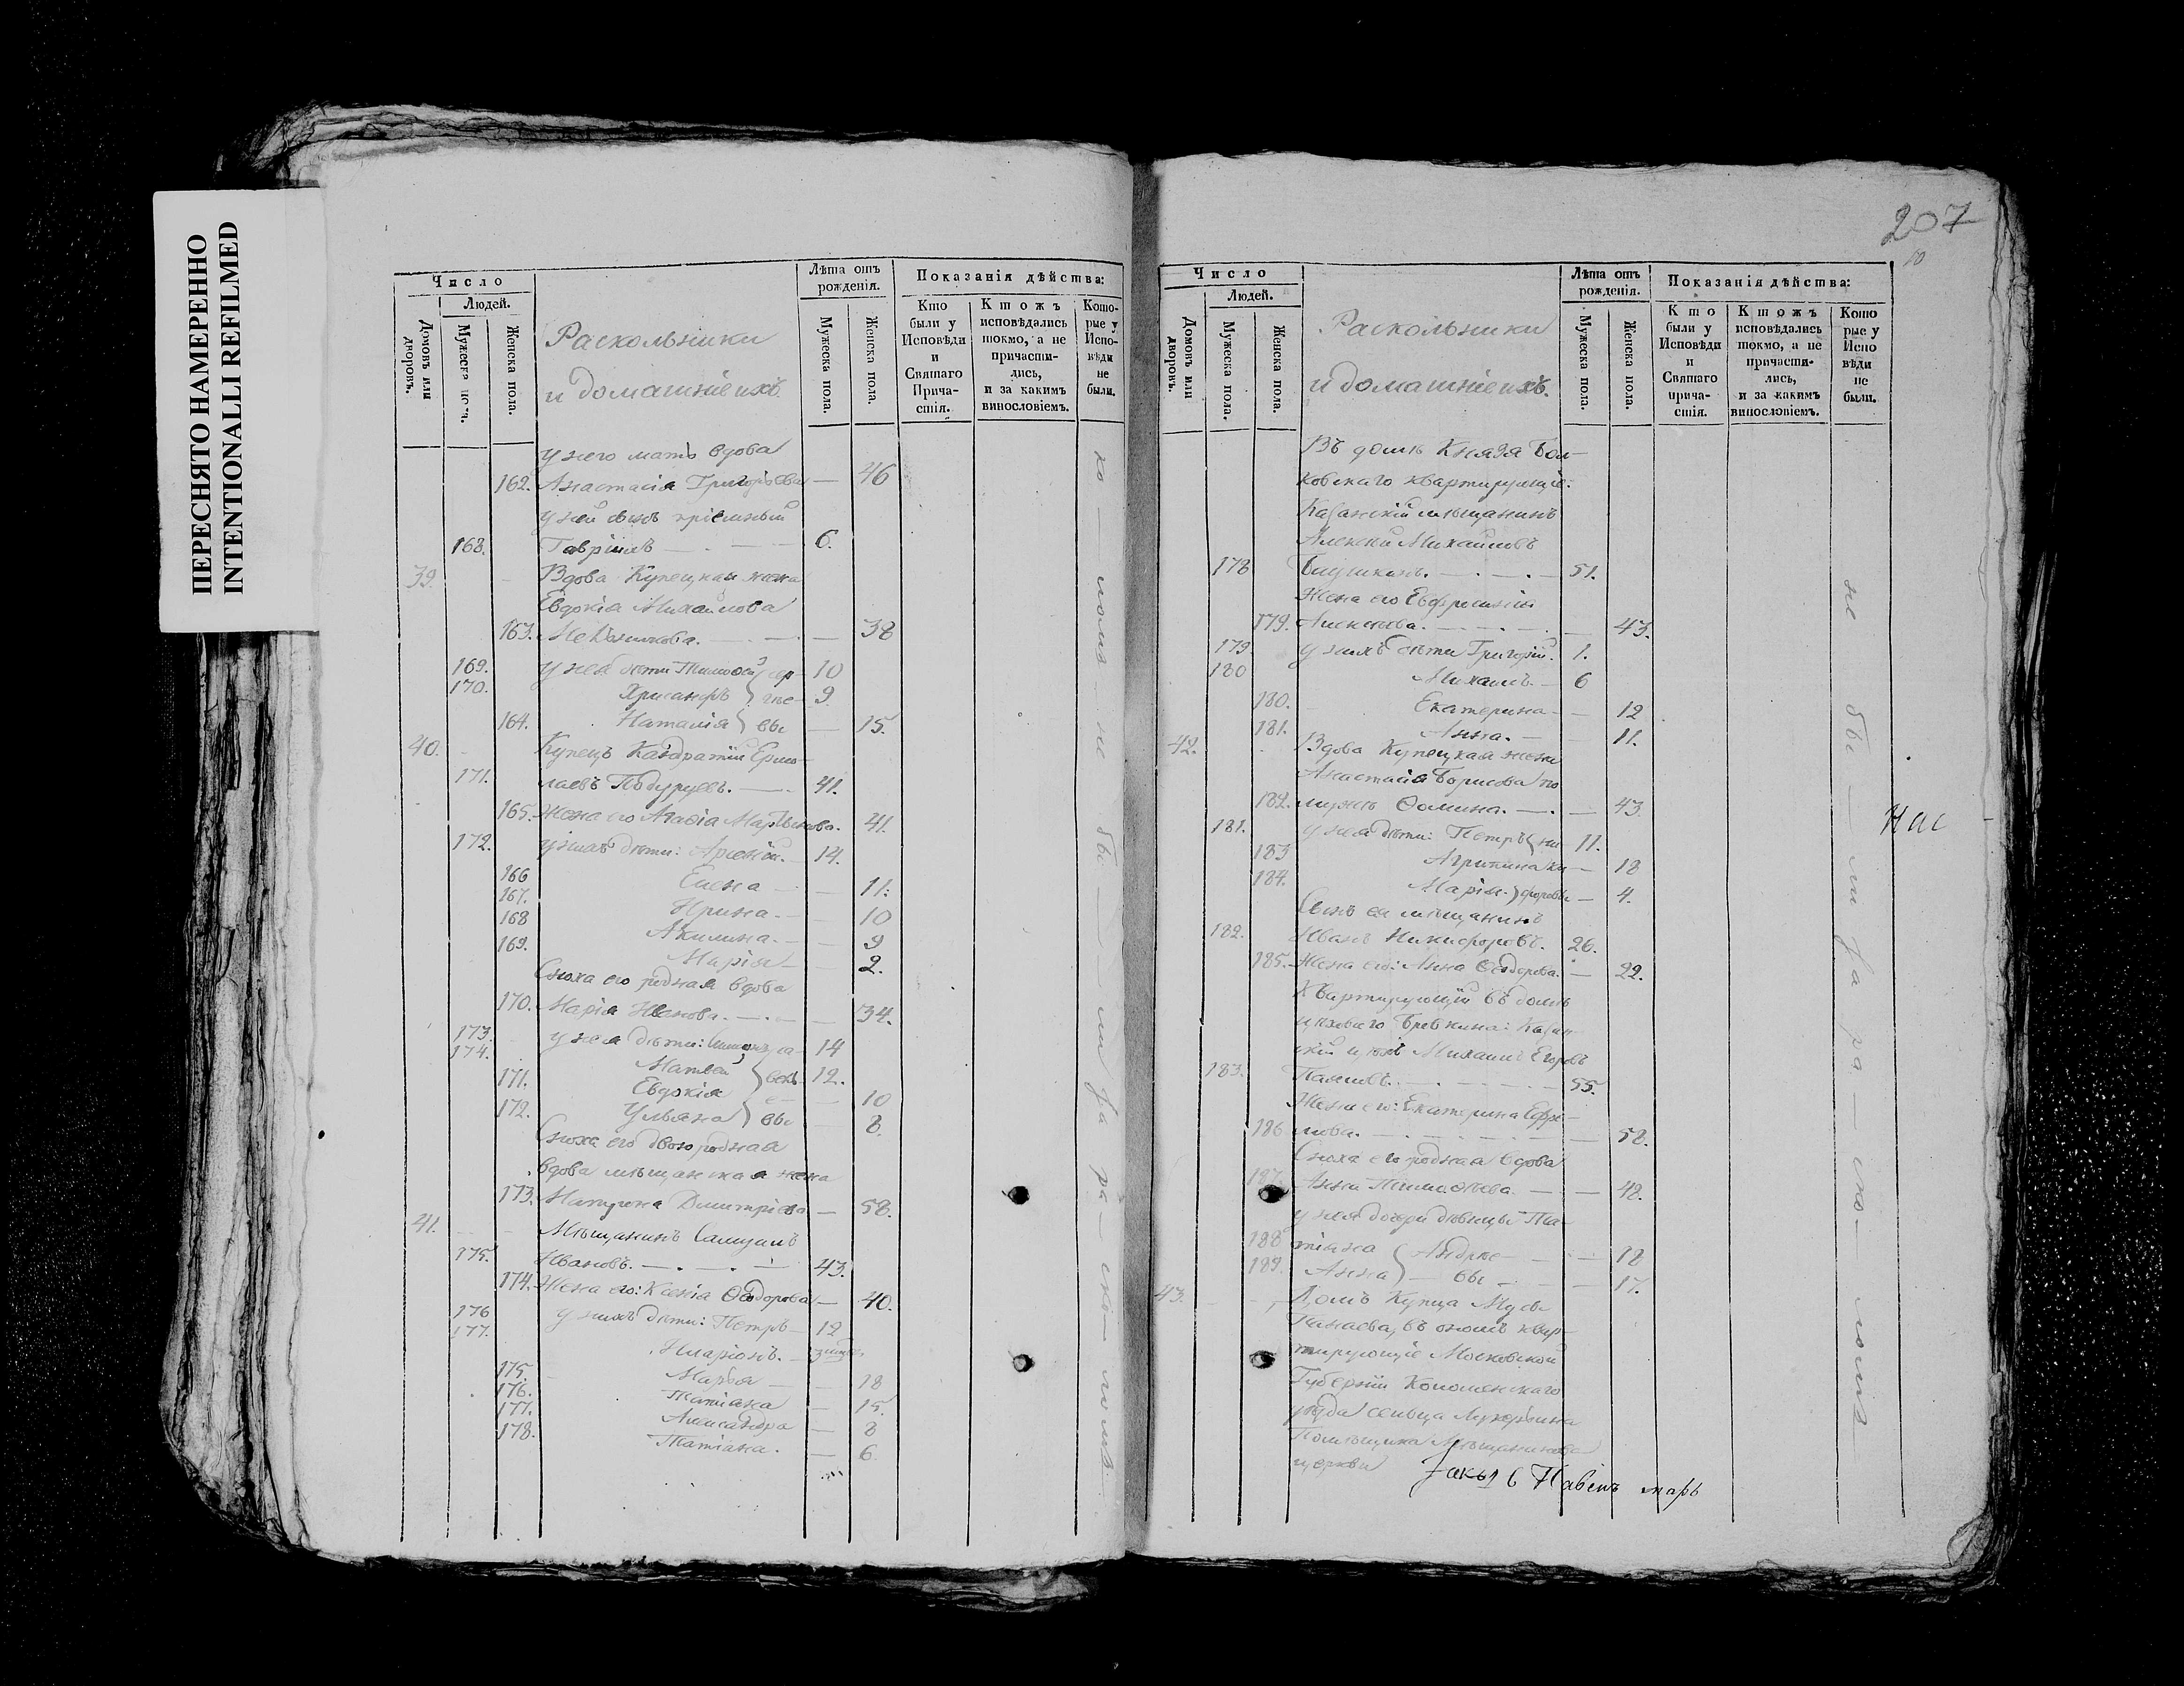 ПЕРЕСНЯТО НАМЕРЕННО
INTENTIONALLI REFILMED
Число
Людей.
Домовъ или дворовъ.
Мужеска пола.
Женска пола.
Раскольники
и домашніе ихъ.
Лѣта отъ рожденія.
Мужеска пола.
Женска пола.
Показанія дѣйства:
Кто были у Исповѣди и Святаго Причастія.
Ктожъ исповѣдались токмо, а не причастились, и за какимъ винословіемъ.
Которые у Исповѣди не были.
у него мать вдова
162. Анастасія Григорьева — 46
у ней сынъ пріемный
168. Гавріилъ — 6.
39. Вдова Купецкая жена
Евдокія Михайлова
163. — 38
169. у нея дѣти Тимофей 10
170. Хрисанфъ 9.
164. Наталія вы — 15.
40. Купецъ Кандратій Ермо-
171. лаевъ — 41.
165. Жена его Агафія Мартынова. 41.
172. у нихъ дѣти: Арсеній. 14.
166 Елена — 11.
167. Ирина. — 10
168 Акилина. — 9
169. Марія — 2.
Сноха его родная вдова
170. Марія Иванова. — 34.
173. у нея дѣти: 14
174. Матвей 12.
171. Евдокія — 10
172. Ульяна вы — 8.
Сноха его двоюродная
вдова мѣщанская жена
173. Матрена Димитріева — 58.
41. Мѣщанинъ Самуилъ
175. Ивановъ. — 43.
174. Жена его: Ксенія Ѳеодорова — 40.
176 у нихъ дѣти: Петръ — 12
177. Иларіонъ. —
175. Марѳа — 18
176. Татіана — 15.
177. Александра — 8
178. Татіана. — 6.
207
Число
Людей.
Домовъ или дворовъ.
Мужеска пола.
Женска пола.
Раскольники
и домашніе ихъ.
Лѣта отъ рожденія.
Мужеска пола.
Женска пола.
Показанія дѣйства:
Кто были у Исповѣди и Святаго причастія.
Ктожъ исповѣдались токмо, а не причастились, и за какимъ винословіемъ.
Которые у Исповѣди не были.
Въ домѣ Князя Бол-
ховскаго квартирующіе:
Казанскій мѣщанинъ
Алексѣй Михайловъ
178 — 51.
Жена его Евфросинія
179. Алексѣева. — 43.
179 у нихъ дѣти Григорій. 1.
180 Михаилъ. — 6
180. Екатерина — 12
181. Анна. — 11.
42. Вдова Купецкая жена
Анастасія Борисова по
182. мужѣ Ѳомина. — 43.
181. у нея дѣти: Петръ ни 11.
183 Агрипина ки — 18
184. Марія. форовы — 4.
Сынъ ея мѣщанинъ
182. Иванъ Никифоровъ. 26.
185. Жена его: Анна Ѳеодорова. — 22.
Квартирующій въ домѣ
цеховаго Казан-
скій цеховой Михаилъ Егоровъ
183. — 55.
Жена его: Екатерина Ефи-
186 мова. — 58.
Сноха его родная вдова
187. Анна Тимоѳеева. — 48.
у нея дочери дѣвицы Та-
188 тіана Андрее- — 18
189. Анна вы — 17.
43. Домъ Купца Мусы
, въ ономъ квар-
тирующіе Московской
Губерніи Коломенскаго
уѣзда сельца
Помѣщика
церкви
Нас